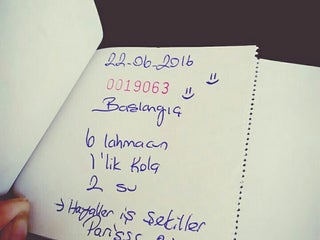 22-06-2016
0019063
Başlangıç
6 lahmacun
1'lik Kola
2 su
→ Hayaller iş Şekiller